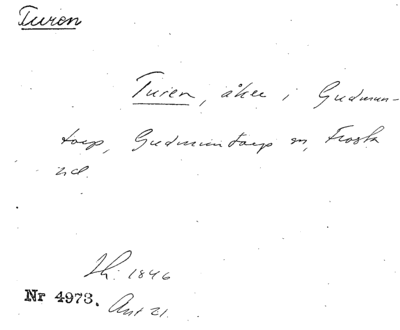 Turon
Turen, åker i Gudmun-
torp, Gudmuntorp sn, Frosta
hd.
Lh: 1846
Nr 4973. Ant 21.